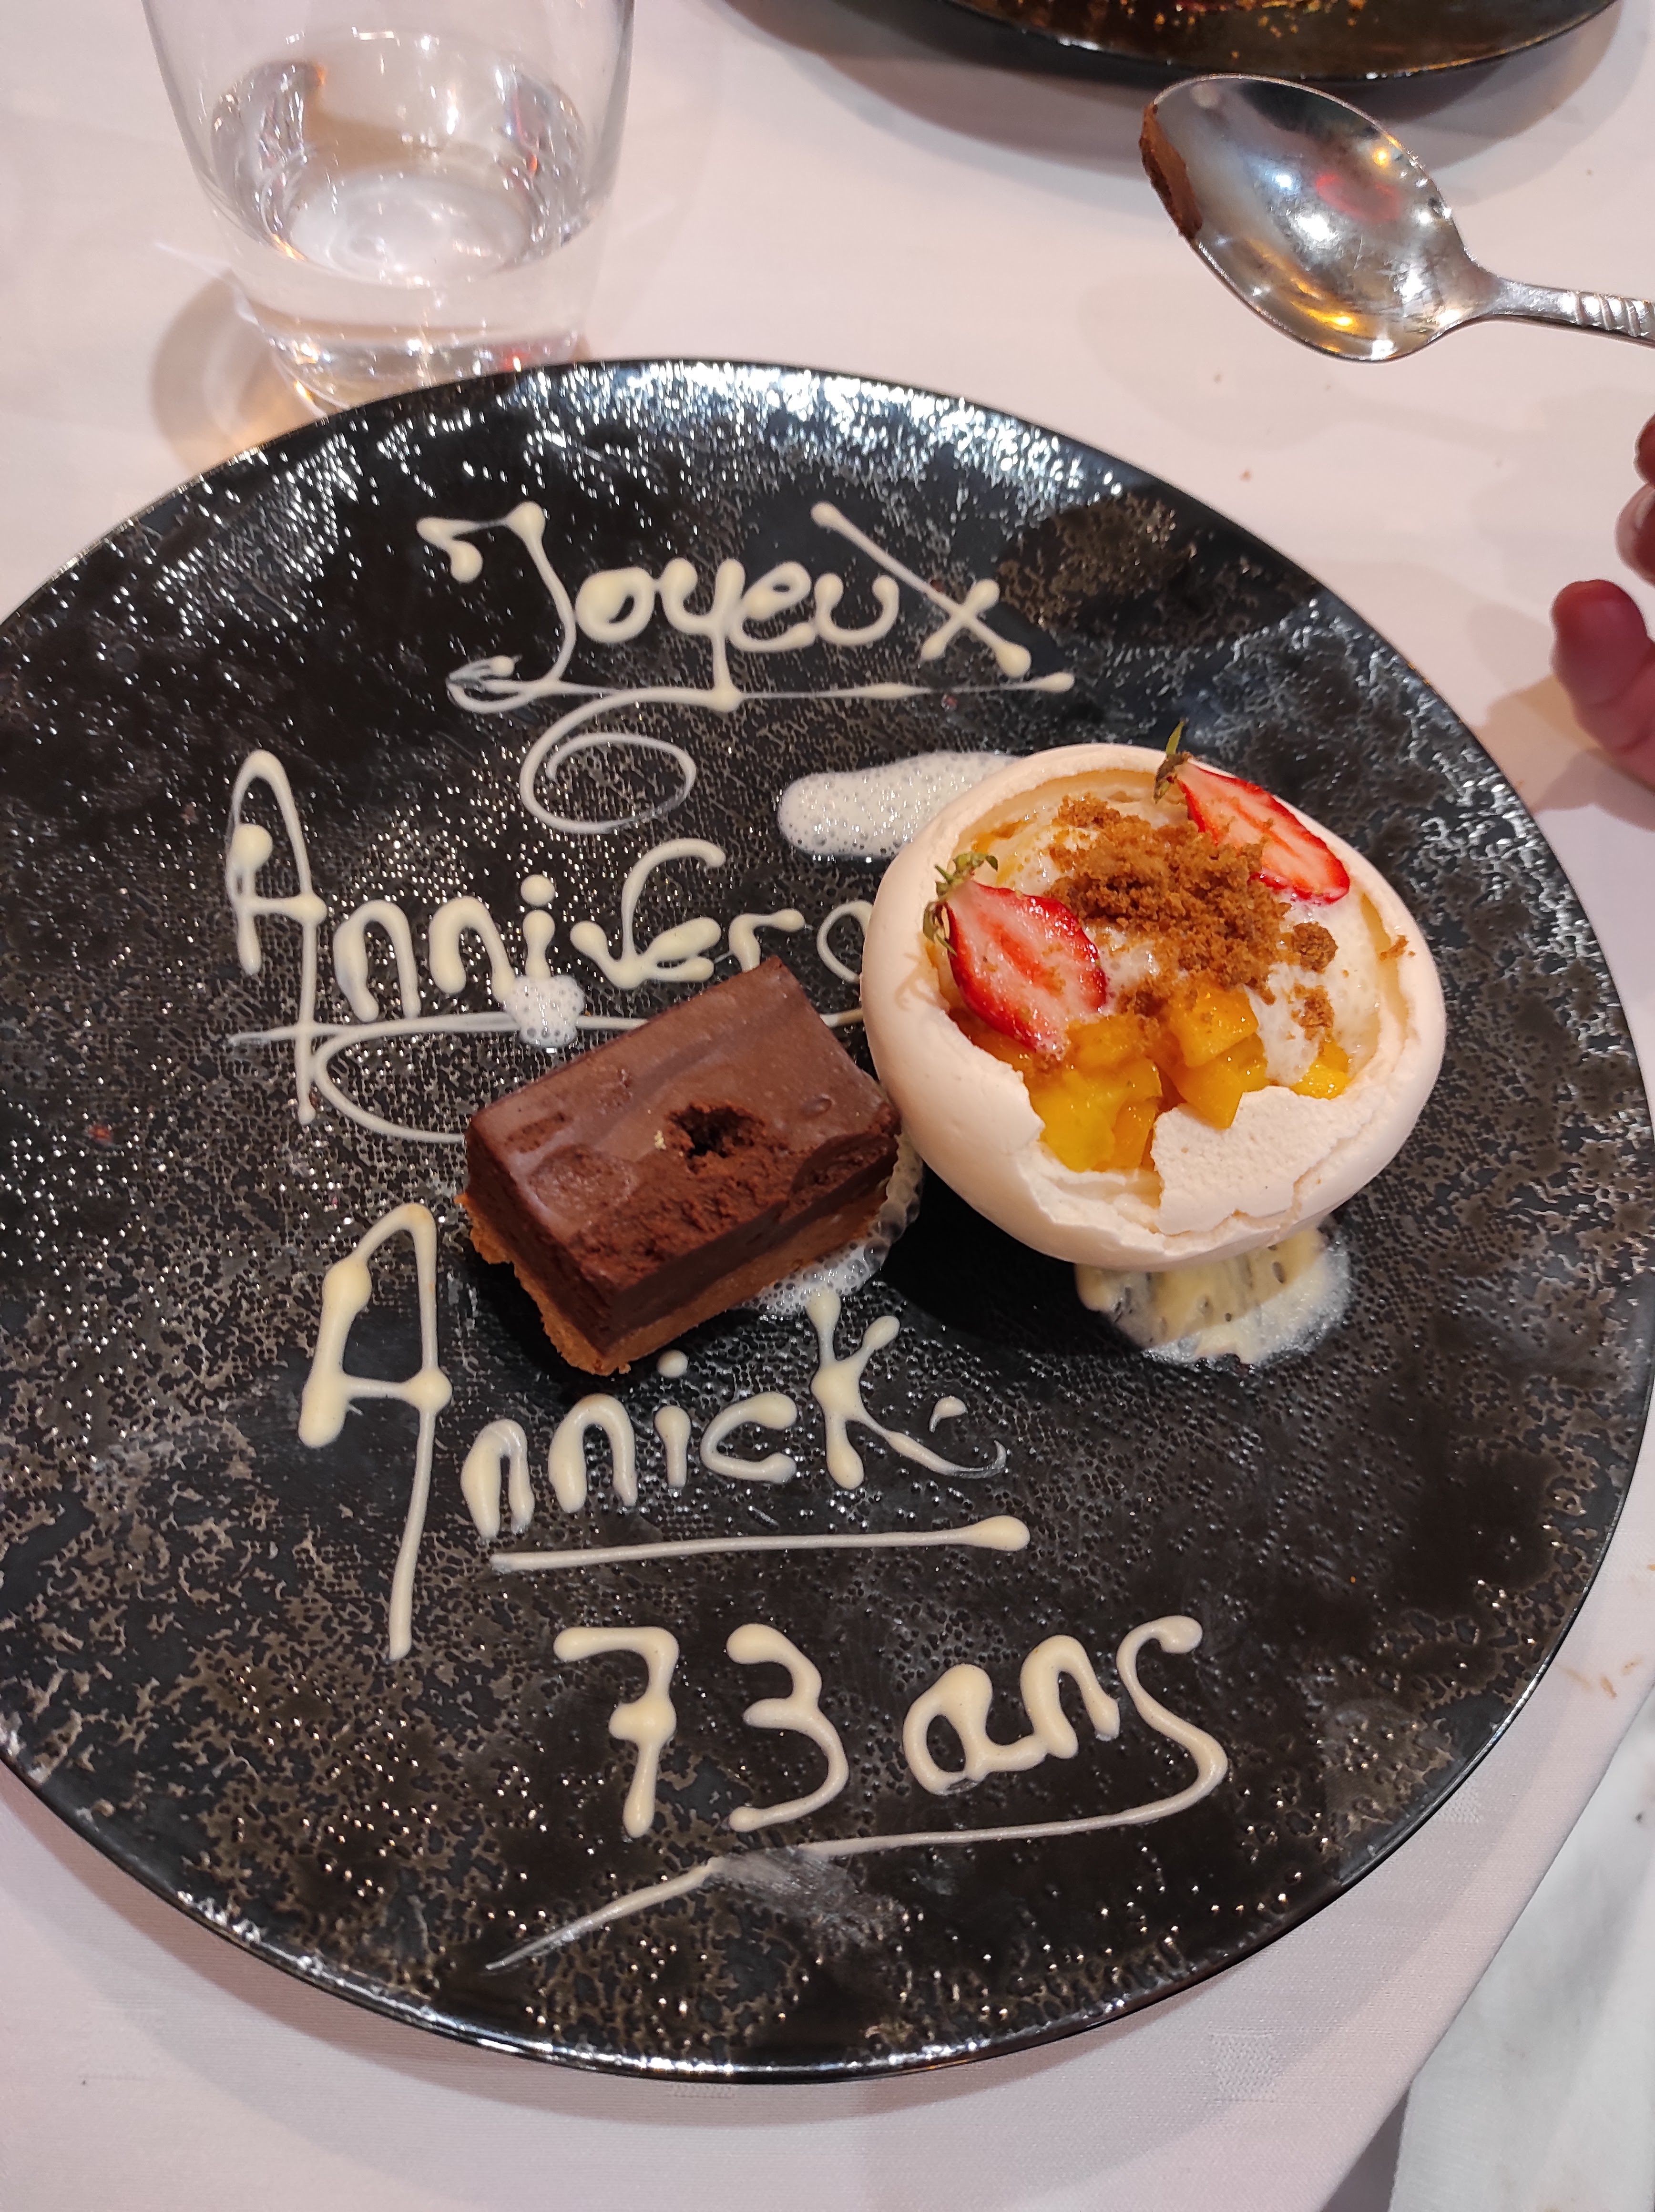 Joyeux
Annivers
Annick
73 ans